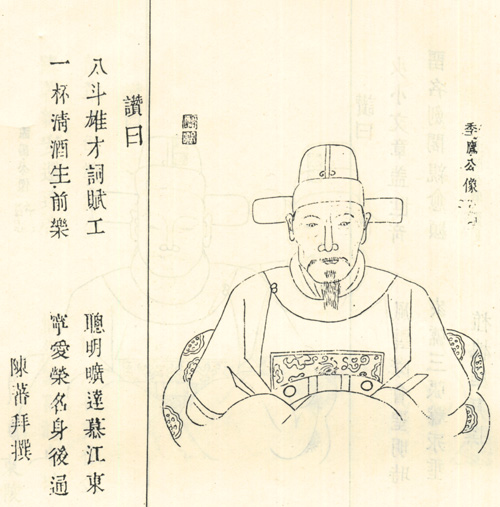 季鷹公像
讚曰
八斗雄才詞賦工 聰明曠達慕江東
一杯清酒生前樂 寧愛榮名身後通
陳蕃拜撰